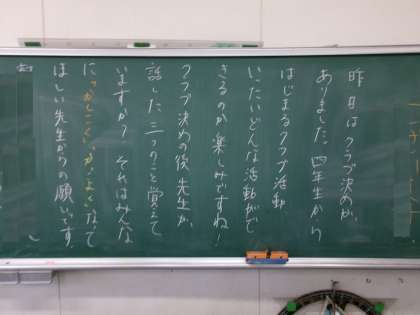 昨日はクラブ決めが、
ありました。四年生から
はじまるクラブ活動
いったいどんな活動がで
きるのか楽しみですね!
クラブ決めの後、先生が、
話した三つのこと覚えて
いますか? それはみんな
になって
ほしい先生からの願いです。